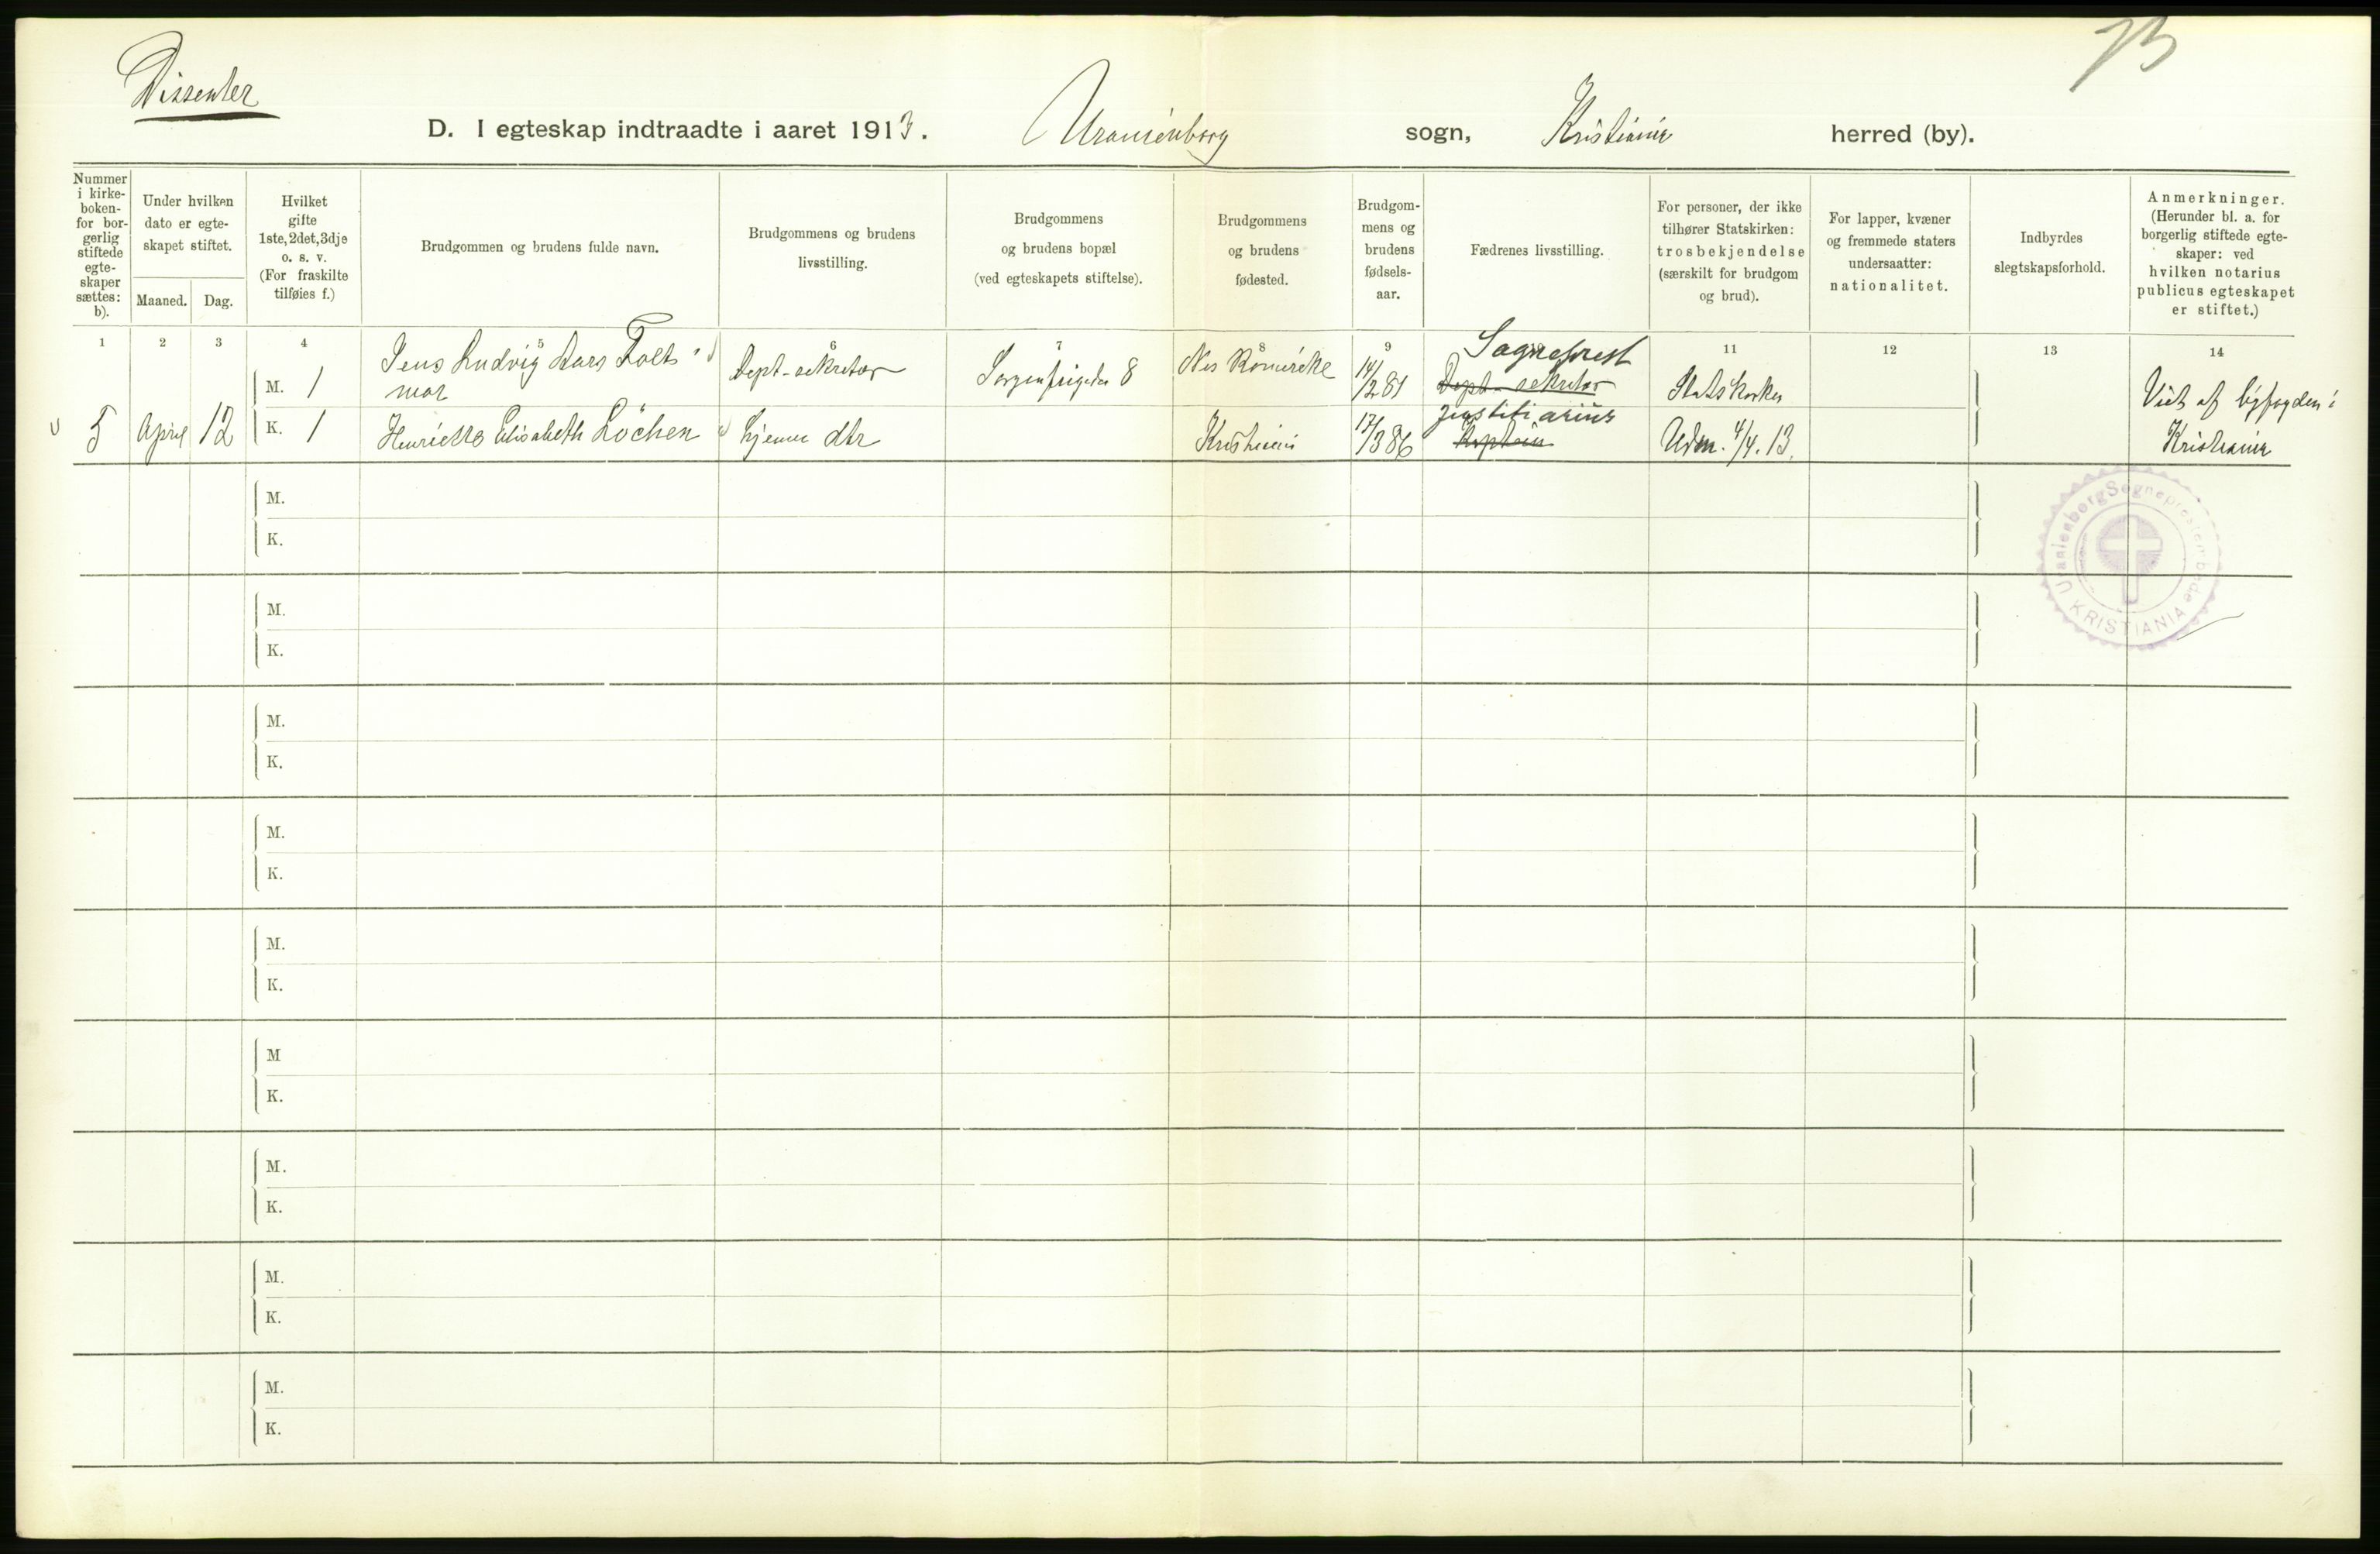 Dissenter
D. I egteskap indtraadte i aaret 1913. Uranienborg sogn, Kristiania herred (by).
Nummer i kirke-boken- for bor-gerlig stiftede egte-skaper sættes: b).
Under hvilken dato er egte-skapet stiftet.
Maaned. Dag.
Hvilket gifte 1ste, 2det, 3dje o. s. v. (For fraskilte tilføies f.)
Brudgommen og brudens fulde navn.
Brudgommens og brudens livsstilling.
Brudgommens og brudens bopæl (ved egteskapets stiftelse).
Brudgommens og brudens fødested.
Brudgom-mens og brudens fødsels-aar.
Fædrenes livsstilling.
For personer, der ikke tilhører Statskirken: trosbekjendelse (særskilt for brudgom og brud).
For lapper, kvæner og fremmede staters undersaatter: nationalitet.
Indbyrdes slegtskapsforhold.
Anmerkninger. (Herunder bl. a. for borgerlig stiftede egte-skaper: ved hvilken notarius publicus egteskapet er stiftet.)
1 2 3 4 5 6 7 8 9 11 12 13 14
5 April 12
M. 1 Jens Ludvig Aars Folts mar Dept-sekretær Sorgenfrigaten 8 Nes Romerike 14/2 81 Sogneprest Dept-sekretær Statskirken
K. 1 Henriette Elisabeth Löchen hjemme dtr Kristiania 17/3 86 justitiarius Kaptein Udm. 4/4. 13.
Viet af byfogden i Kristiania
Uranienborg Sogneprestembede KRISTIANIA
M.
K.
M.
K.
M.
K.
M.
K.
M.
K.
M
K.
M.
K.
M.
K.
M.
K.